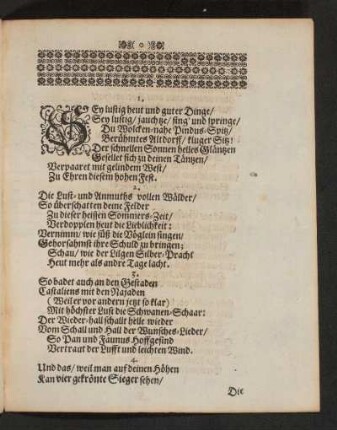 o
1.
SEy lustig heut und guter Dinge/
Sey lustig/ jauchtze/ sing' und springe/
Du Wolcken-nahe Pindus-Spitz/
Berühmtes Altdorff/ kluger Sitz!
Der schnellen Sonnen helles Gläntzen
Gesellet sich zu deinen Täntzen/
Verpaaret mit gelindem West/
Zu Ehren diesem hohen Fest.
2.
Die Lust- und Anmuths vollen Wälder/
So überschatten deine Felder
Zu dieser heissen Sommers-Zeit/
Verdopplen heut die Lieblichkeit:
Vernimm/ wie süß die Vöglein singen/
Gehorsahmst ihre Schuld zu bringen;
Schau/ wie der Lilgen Silber-Pracht
Heut mehr als andre Tage lacht.
3.
So badet auch an den Gestaden
Castaliens mit den Najaden
(Weil er vor andern jetzt so klar)
Mit höchster Lust die Schwanen-Schaar:
Der Wieder-hall schallt helle wieder
Vom Schall und Hall der Wunsches-Lieder/
So Pan und Faunus Hoffgesind
Vertraut der Lufft und leichten Wind.
4.
Und das/ weil man auf deinen Höhen
Kan vier gekrönte Sieger sehen/
Die